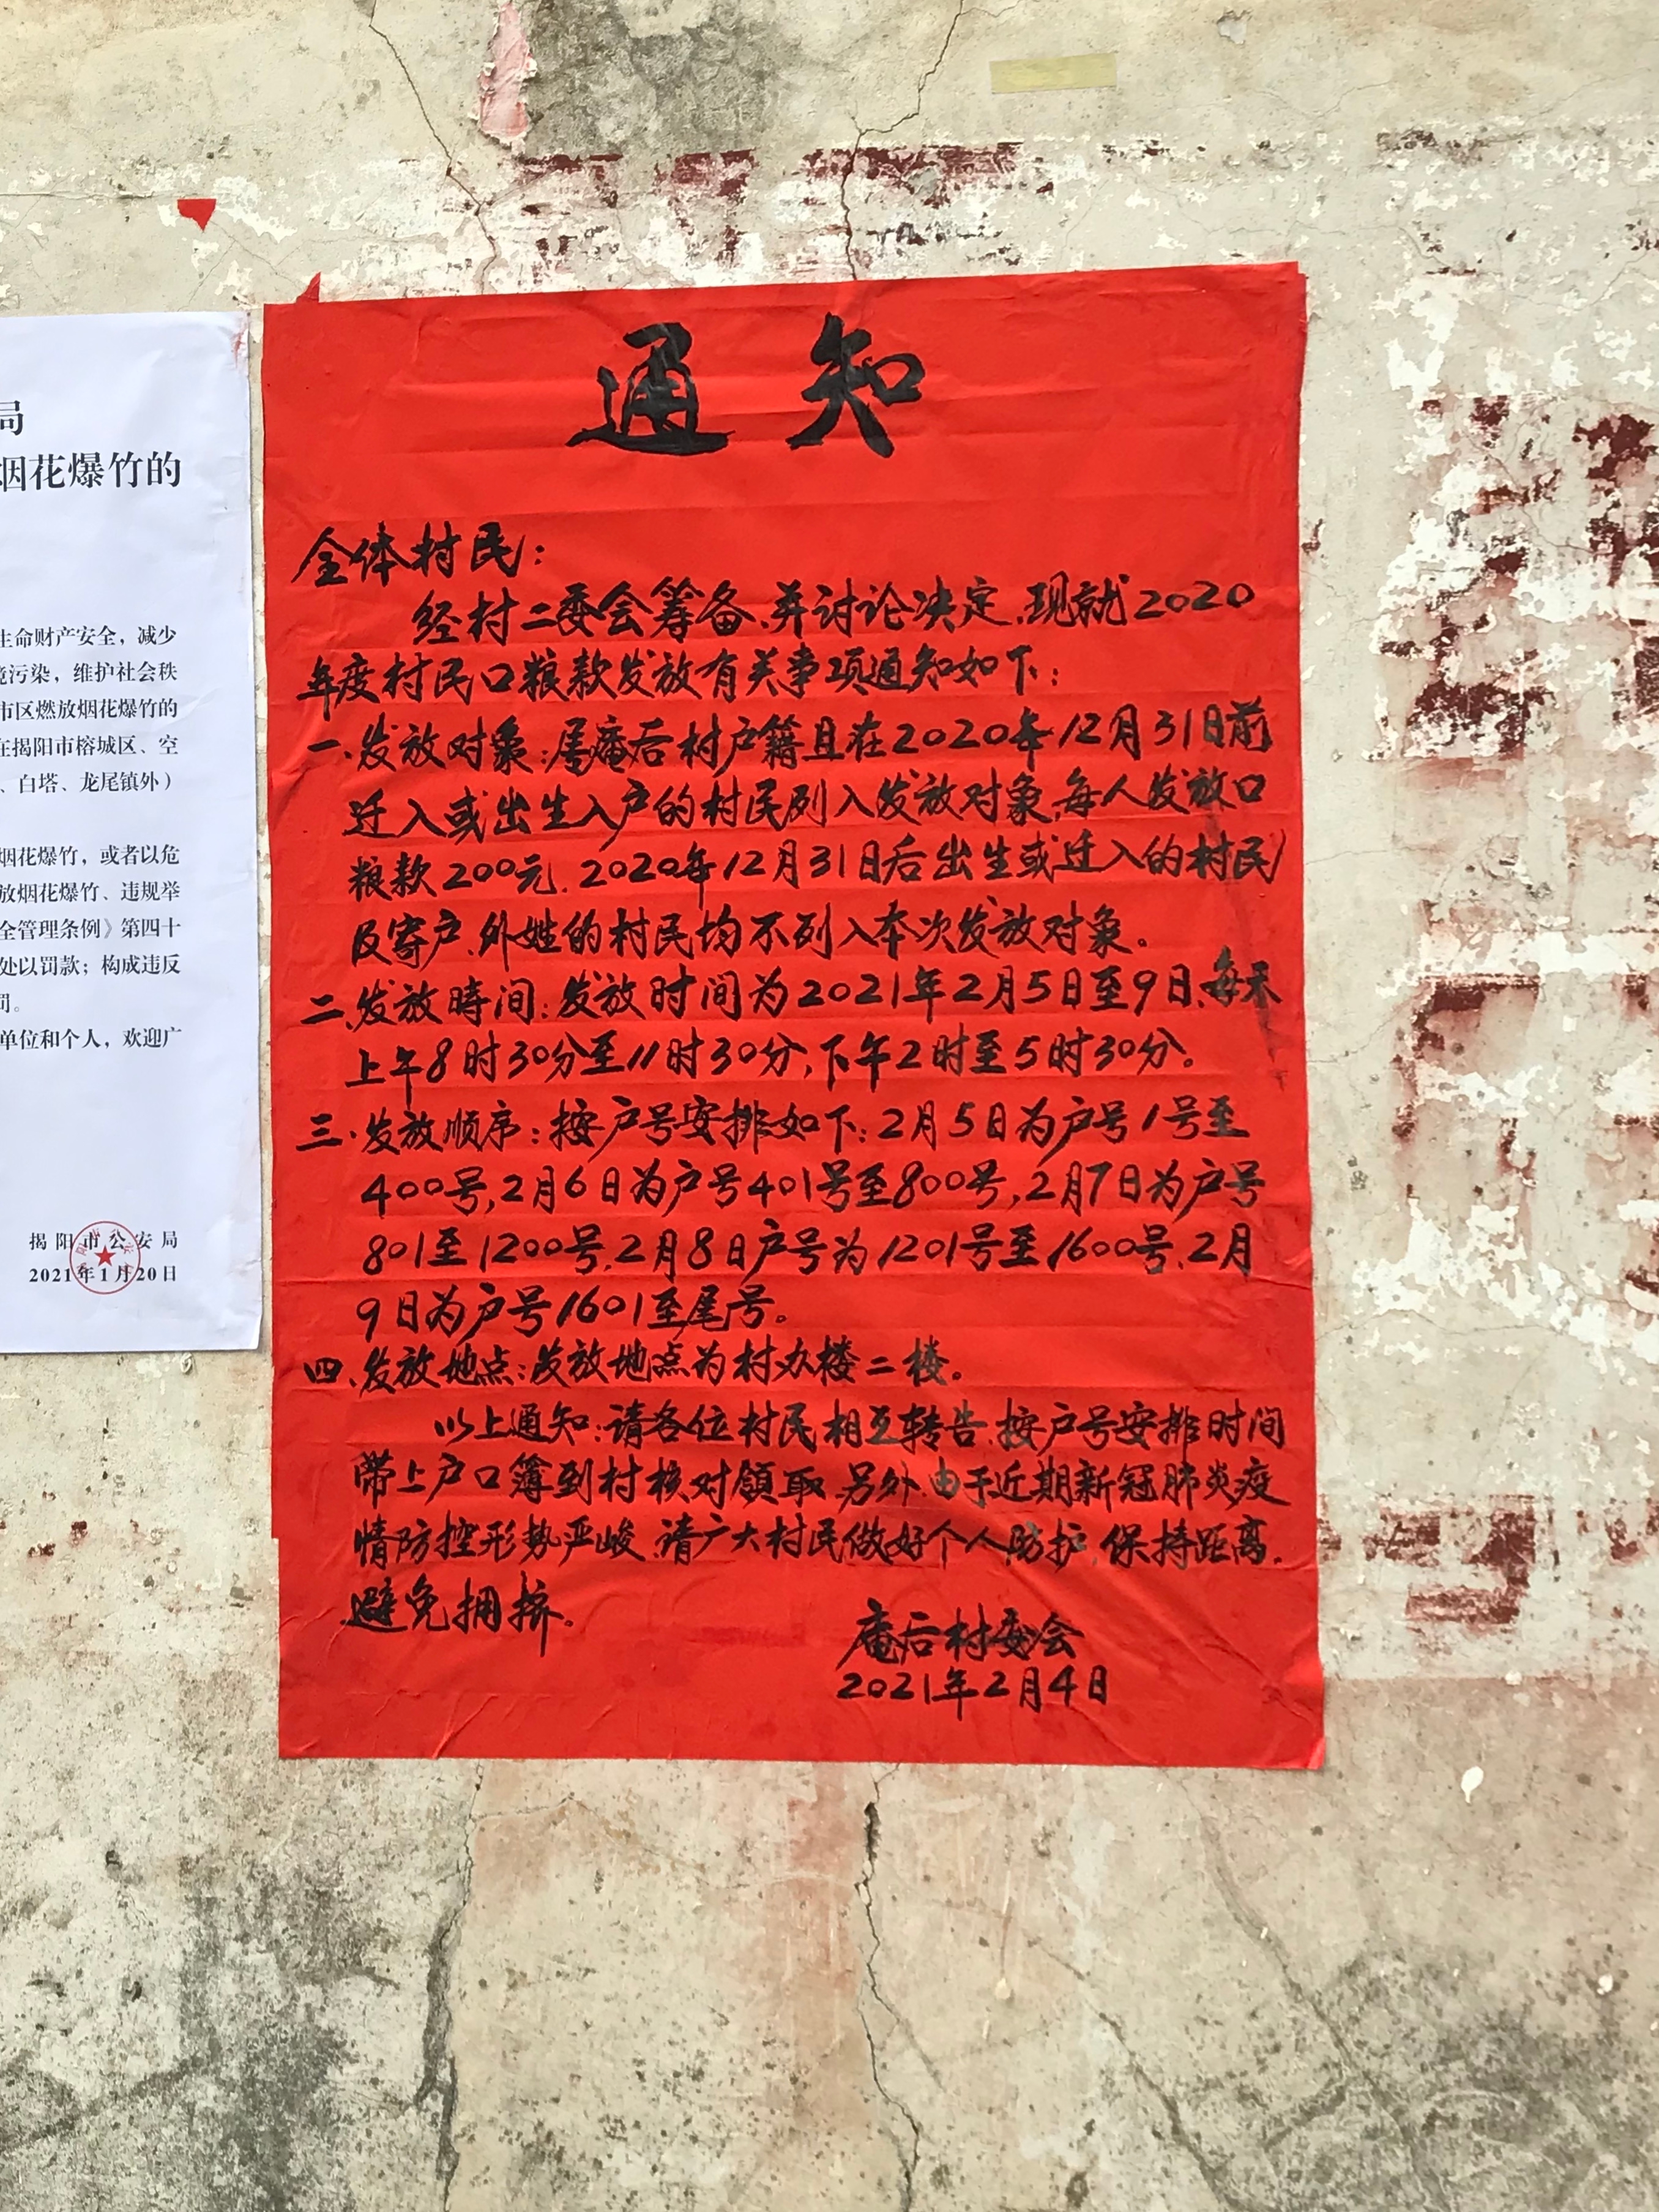 局
烟花爆竹的
生命财产安全，减少
境污染，维护社会秩
市区燃放烟花爆竹的
在揭阳市榕城区、空
、白塔、龙尾镇外）
烟花爆竹，或者以危
放烟花爆竹、违规举
全管理条例》第四十
处以罚款；构成违反
罚。
单位和个人，欢迎广
揭阳市公安局
2021年1月20日
通知
全体村民：
经村二委会筹备、并讨论决定、现就2020
年度村民口粮款发放有关事项通知如下：
一、发放对象：属庵后村户籍且在2020年12月31日前
迁入或出生入户的村民列入发放对象，每人发放口
粮款200元、2020年12月31日后出生或迁入的村民
及寄户、外姓的村民均不列入本次发放对象。
二、发放時间：发放时间为2021年2月5日至9日、每天
上午8时30分至11时30分，下午2时至5时30分。
三、发放顺序：按户号安排如下：2月5日为户号1号至
400号，2月6日为户号401号至800号，2月7日为户号
801至1200号、2月8日户号为1201号至1600号、2月
9日为户号1601至尾号。
四、发放地点：发放地点为村办楼二楼。
以上通知：请各位村民相互转告、按户号安排时间
带上户口簿到村核对領取、另外由于近期新冠肺炎疫
情防控形势严峻、请广大村民做好个人防护、保持距离、
避免拥挤。
庵后村委会
2021年2月4日